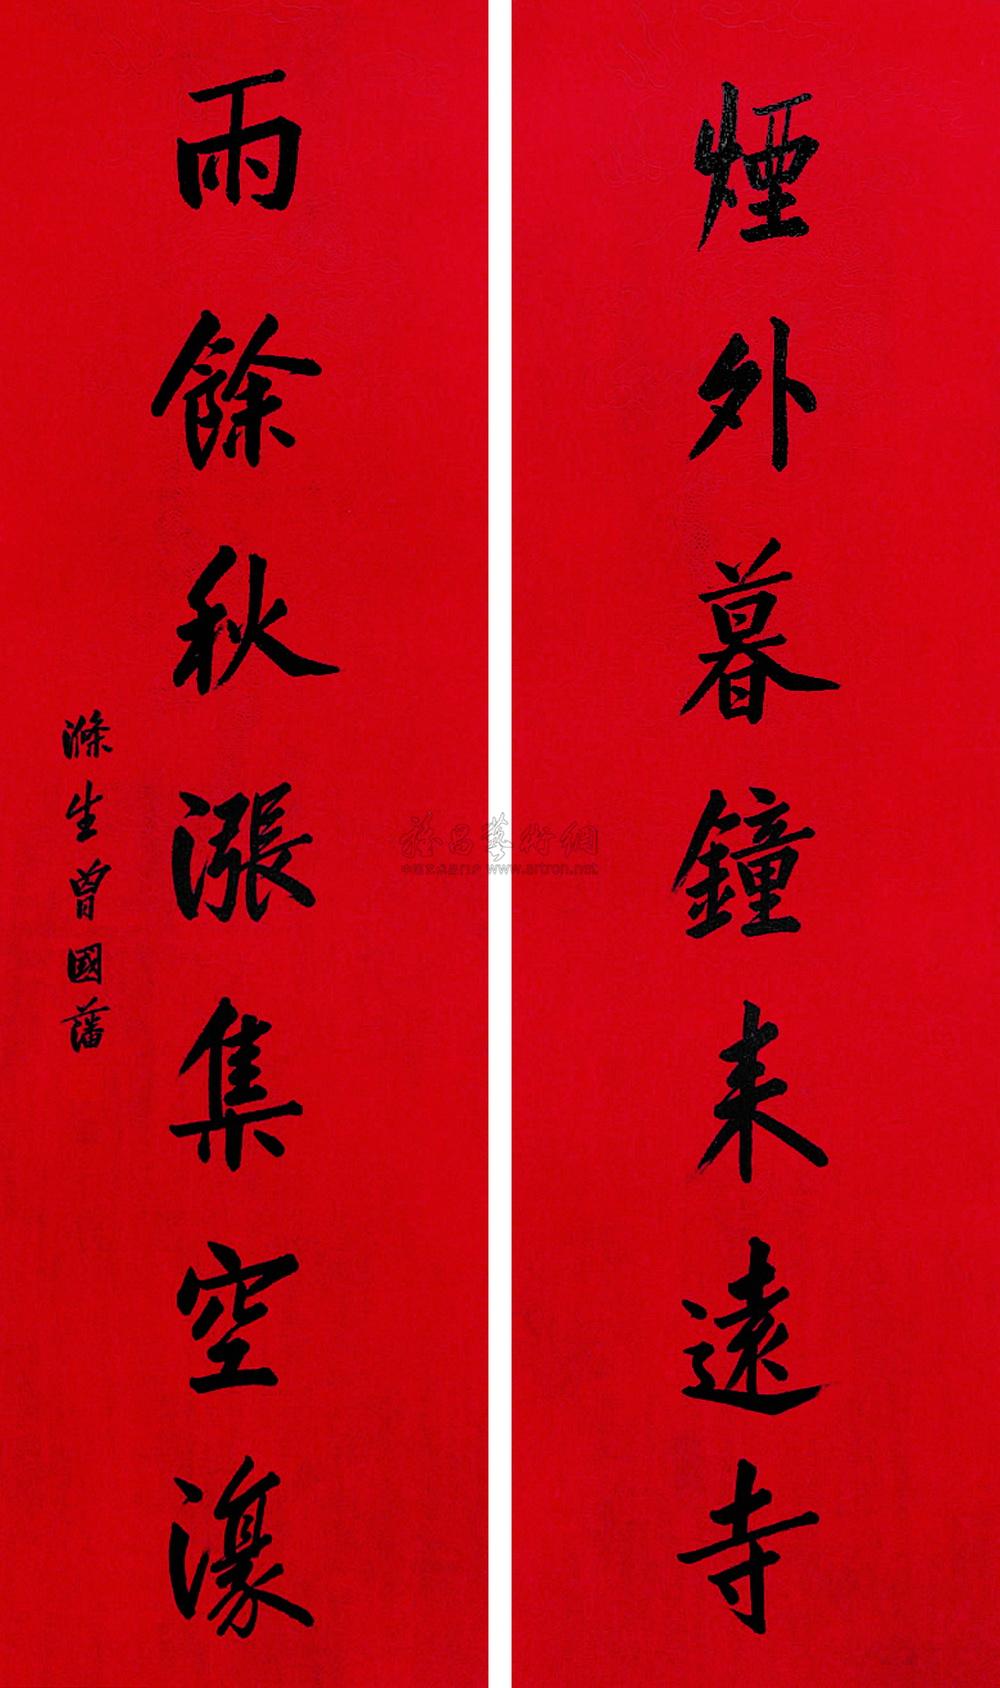 煙外暮鐘來遠寺
雨餘秋漲集空濠
滌生曾國藩
雅昌藝術網
中国艺术品门户 www.artron.net